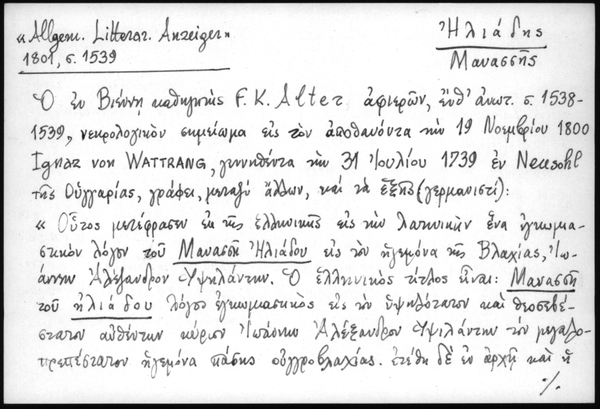 «Allgem. Litterar. Anzeiger»
1801, σ. 1539
Ἠλιάδης
Μανασσῆς
Ὁ ἐν Βιέννῃ καθηγητὴς F. K. Alter ἀφιερῶν, ἔνθ' ἀνωτ. σ. 1538-
1539, νεκρολογικὸν σημείωμα εἰς τὸν ἀποθανόντα τὴν 19 Νοεμβρίου 1800
Ignaz von WATTRANG, γεννηθέντα τὴν 31 Ἰουλίου 1739 ἐν Neusohl
τῆς Οὑγγαρίας, γράφει, μεταξὺ ἄλλων, καὶ τὰ ἑξῆς (γερμανιστί):
«Οὗτος μετέφρασεν ἐκ τῆς ἑλληνικῆς εἰς τὴν λατινικὴν ἕνα ἐγκωμια-
στικὸν λόγον τοῦ Μανασσῆ Ἠλιάδου εἰς τὸν ἡγεμόνα τῆς Βλαχίας, Ἰω-
άννην Ἀλέξανδρον Ὑψηλάντην. Ὁ ἑλληνικὸς τίτλος εἶναι: Μανασσῆ
τοῦ ἠλιάδου λόγος ἐγκωμιαστικὸς εἰς τὸν ὑψηλότατον καὶ θεοσεβέ-
στατον αὐθέντην κύριον Ἰωάννην Ἀλέξανδρον Ὑψιλάντην τὸν μεγαλο-
πρεπέστατον ἡγεμόνα πάσης οὑγγροβλαχίας. ἐτέθη δὲ ἐν ἀρχῇ καὶ ἡ
./.